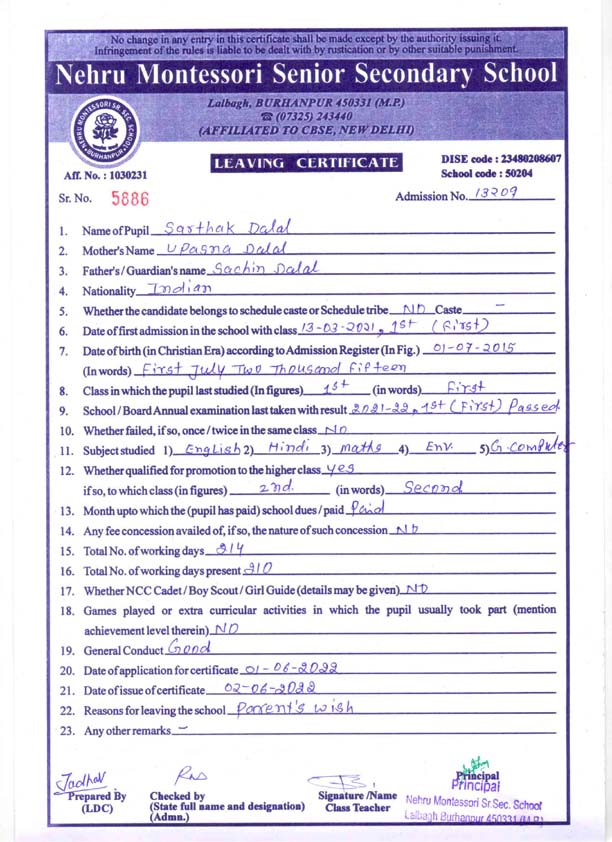 No change in any entry in this certificate shall be made except by the authority issuing it.
Infringement of the rules is liable to be dealt with by rustication or by other suitable punishment.
Nehru Montessori Senior Secondary School
Lalbagh, BURHANPUR 450331 (M.P.)
☎ (07325) 243440
(AFFILIATED TO CBSE, NEW DELHI)
NEHRU MONTESSORI SR. SEC. SCHOOL
BURHANPUR
LEAVING CERTIFICATE
DISE code : 23480208607
School code : 50204
Aff. No. : 1030231
Sr. No. 5886
Admission No. 13209
1. Name of Pupil Sarthak Dalal
2. Mother's Name Upasna Dalal
3. Father's / Guardian's name Sachin Dalal
4. Nationality Indian
5. Whether the candidate belongs to schedule caste or Schedule tribe NO Caste –
6. Date of first admission in the school with class 13-03-2021, 1st (First)
7. Date of birth (in Christian Era) according to Admission Register (In Fig.) 01-07-2015
(In words) First July Two Thousand Fifteen
8. Class in which the pupil last studied (In figures) 1st (in words) First
9. School / Board Annual examination last taken with result 2021-22, 1st (First) Passed
10. Whether failed, if so, once / twice in the same class NO
11. Subject studied 1) English 2) Hindi 3) maths 4) Env. 5) G. computer
12. Whether qualified for promotion to the higher class yes
if so, to which class (in figures) 2nd. (in words) Second
13. Month upto which the (pupil has paid) school dues / paid Paid
14. Any fee concession availed of, if so, the nature of such concession NO
15. Total No. of working days 214
16. Total No. of working days present 210
17. Whether NCC Cadet / Boy Scout / Girl Guide (details may be given) NO
18. Games played or extra curricular activities in which the pupil usually took part (mention
achievement level therein) NO
19. General Conduct Good
20. Date of application for certificate 01-06-2022
21. Date of issue of certificate 02-06-2022
22. Reasons for leaving the school Parent's wish
23. Any other remarks –
Jadhav
Prepared By
(LDC)
Checked by
(State full name and designation)
(Admn.)
Signature /Name
Class Teacher
Principal
Principal
Nehru Montessori Sr.Sec. School
Lalbagh Burhanpur 450331 (M.P.)